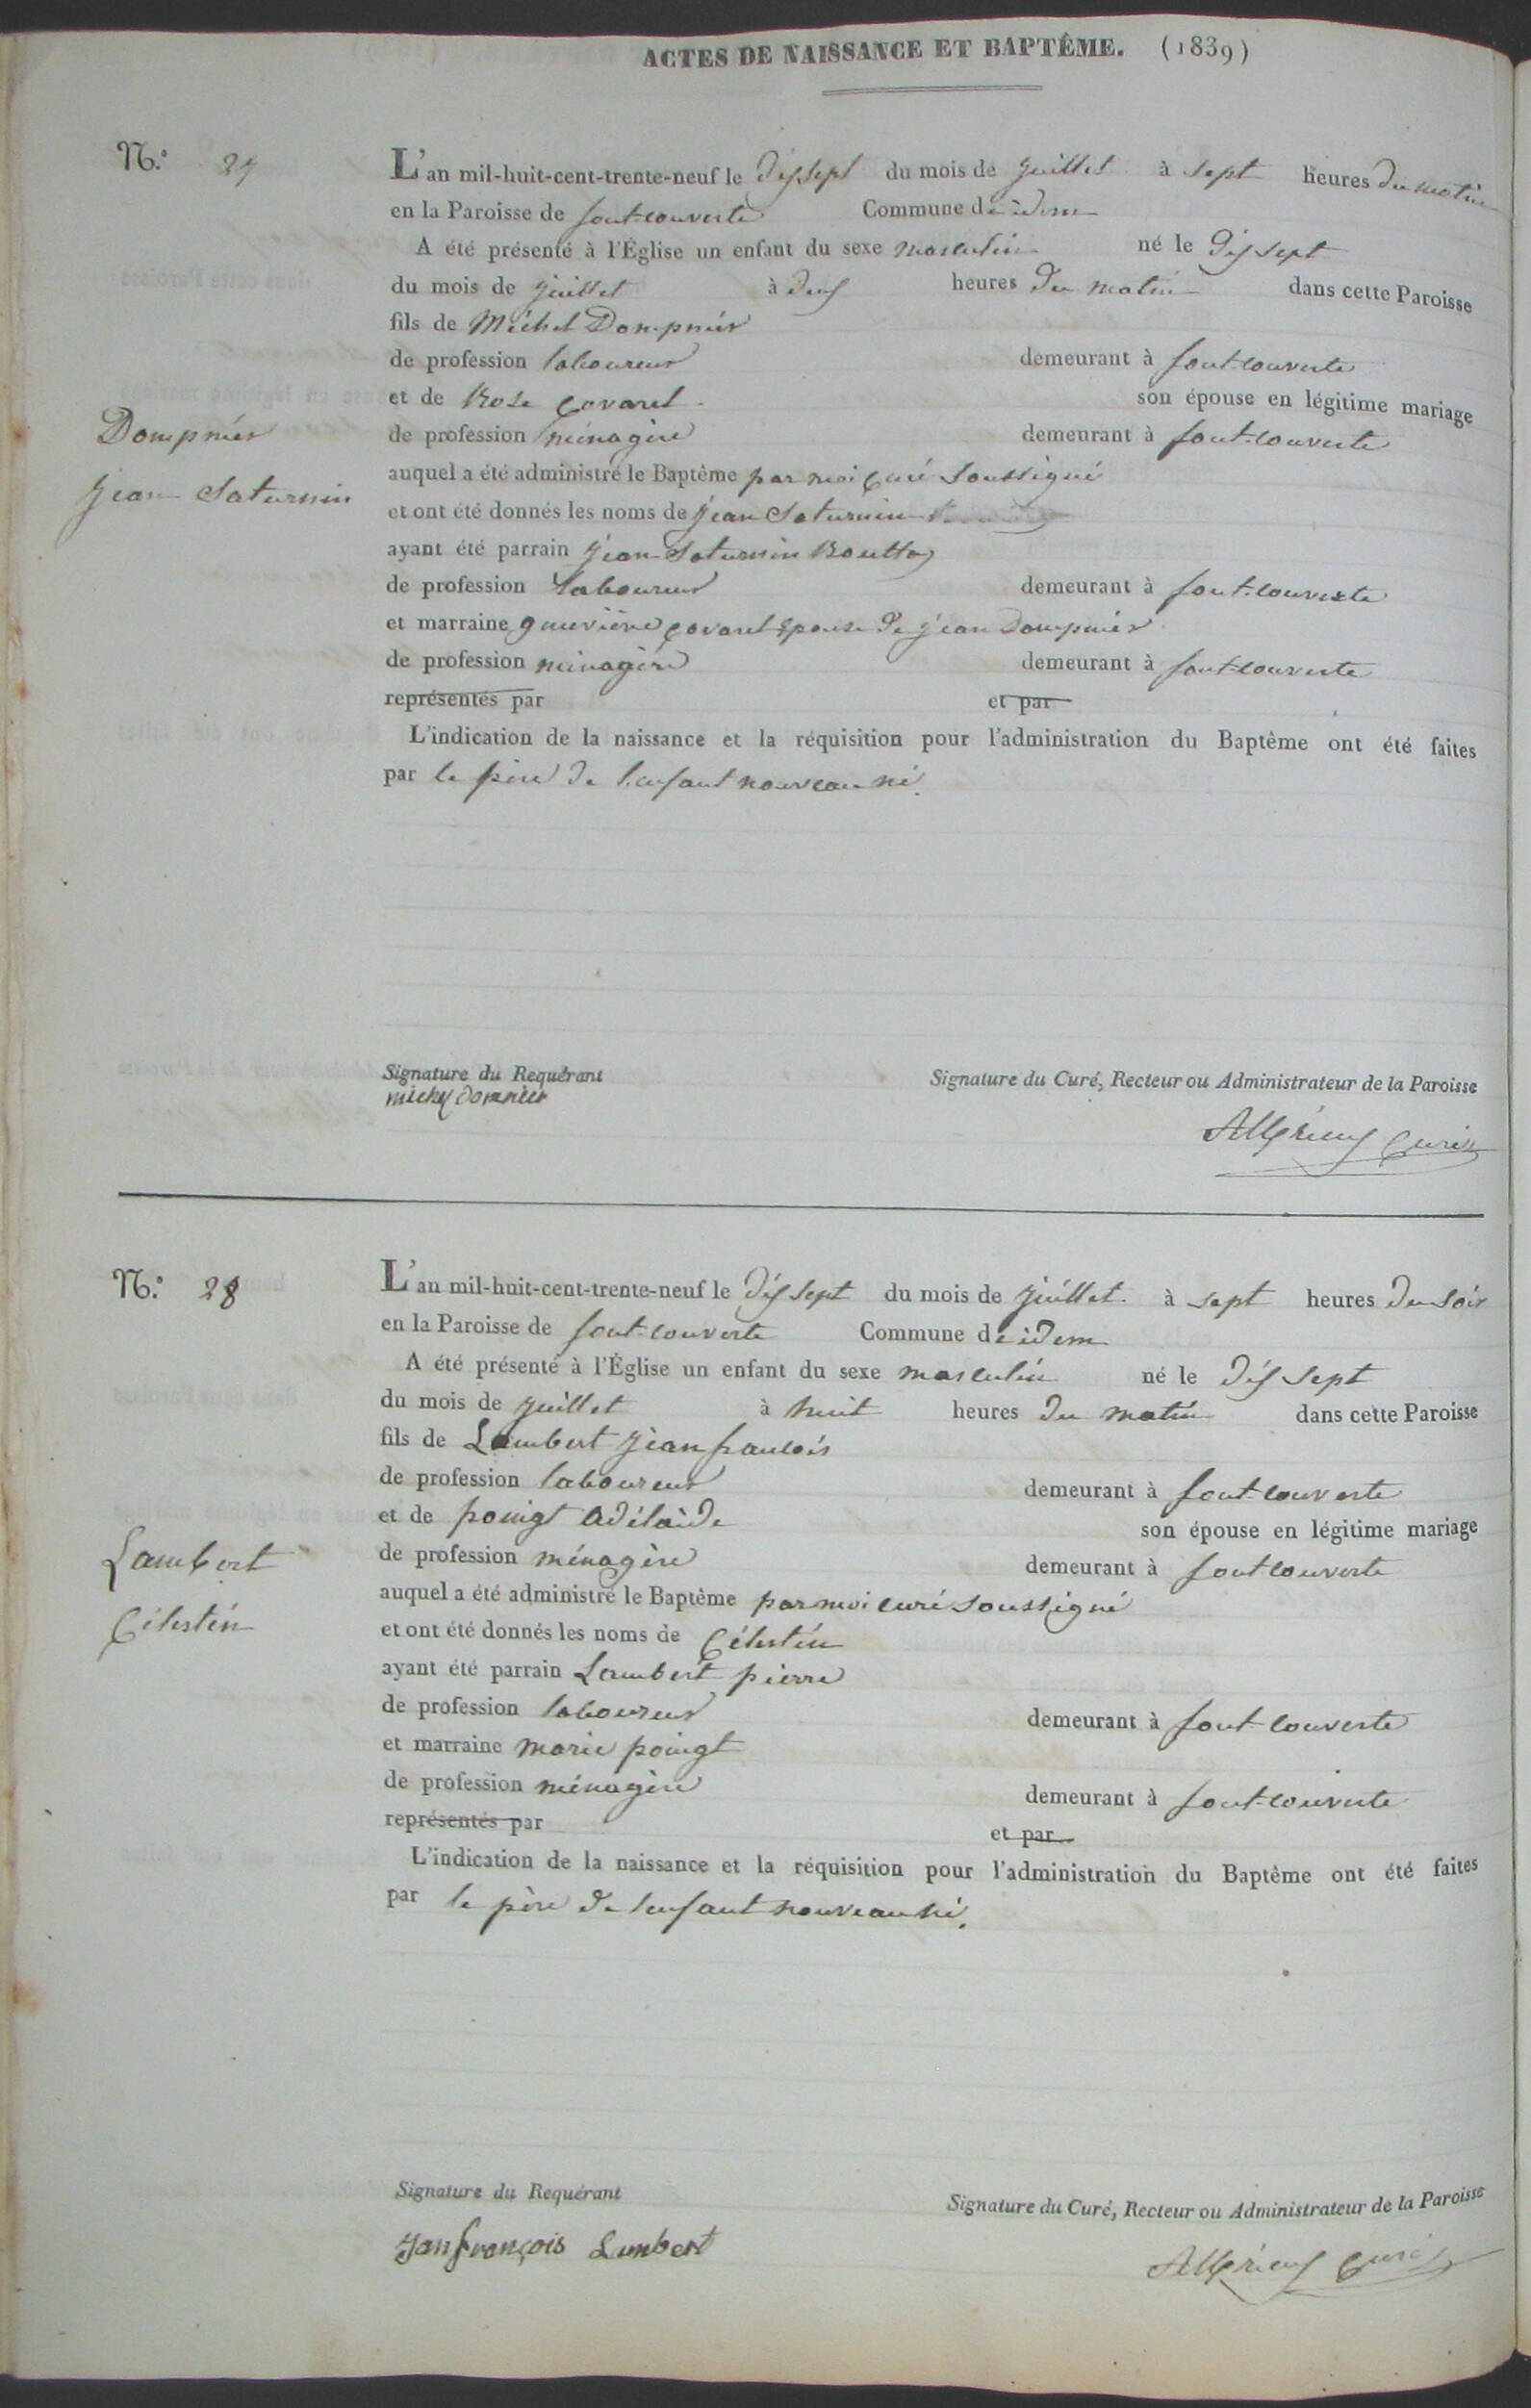 ACTES DE NAISSANCE ET BAPTÊME. (1839)
N.° 27
L'an mil-huit-cent-trente-neuf le dix sept du mois de juillet à sept heures du matin
en la Paroisse de font-couverte Commune de idem
A été présenté à l'Église un enfant du sexe masculin né le dix sept
du mois de juillet à deux heures du matin dans cette Paroisse
fils de Michel Dompnier
de profession laboureur demeurant à font-couverte
et de Rose Covarel son épouse en légitime mariage
Dompnier
de profession ménagère demeurant à font-couverte
Jean Saturnin
auquel a été administré le Baptême par moi Curé Soussigné
et ont été donnés les noms de Jean Saturnin
ayant été parrain Jean Saturnin Routtaz
de profession laboureur demeurant à font-couverte
et marraine gnevième Covarel Epouse de Jean Dompnier
de profession ménagère demeurant à font-couverte
représentés par et par
L'indication de la naissance et la réquisition pour l'administration du Baptême ont été faites
par le père de l'enfant nouveau né.
Signature du Requérant Signature du Curé, Recteur ou Administrateur de la Paroisse
michel domnier
Curé
N.° 28
L'an mil-huit-cent-trente-neuf le dix sept du mois de juillet à sept heures du soir
en la Paroisse de font-couverte Commune de idem
A été présenté à l'Église un enfant du sexe masculin né le dix sept
du mois de juillet à huit heures du matin dans cette Paroisse
fils de Lambert Jean francois
de profession laboureur demeurant à font-couverte
et de poingt Adélaïde son épouse en légitime mariage
Lambert
de profession ménagère demeurant à font-couverte
Célestin
auquel a été administré le Baptême par moi curé soussigné
et ont été donnés les noms de Célestin
ayant été parrain Lambert pierre
de profession laboureur demeurant à font couverte
et marraine marie poingt
de profession ménagère demeurant à font-couverte
représentés par et par
L'indication de la naissance et la réquisition pour l'administration du Baptême ont été faites
par le père de lenfant nouveau né.
Signature du Requérant Signature du Curé, Recteur ou Administrateur de la Paroisse
Jan françois Lambert
Curé